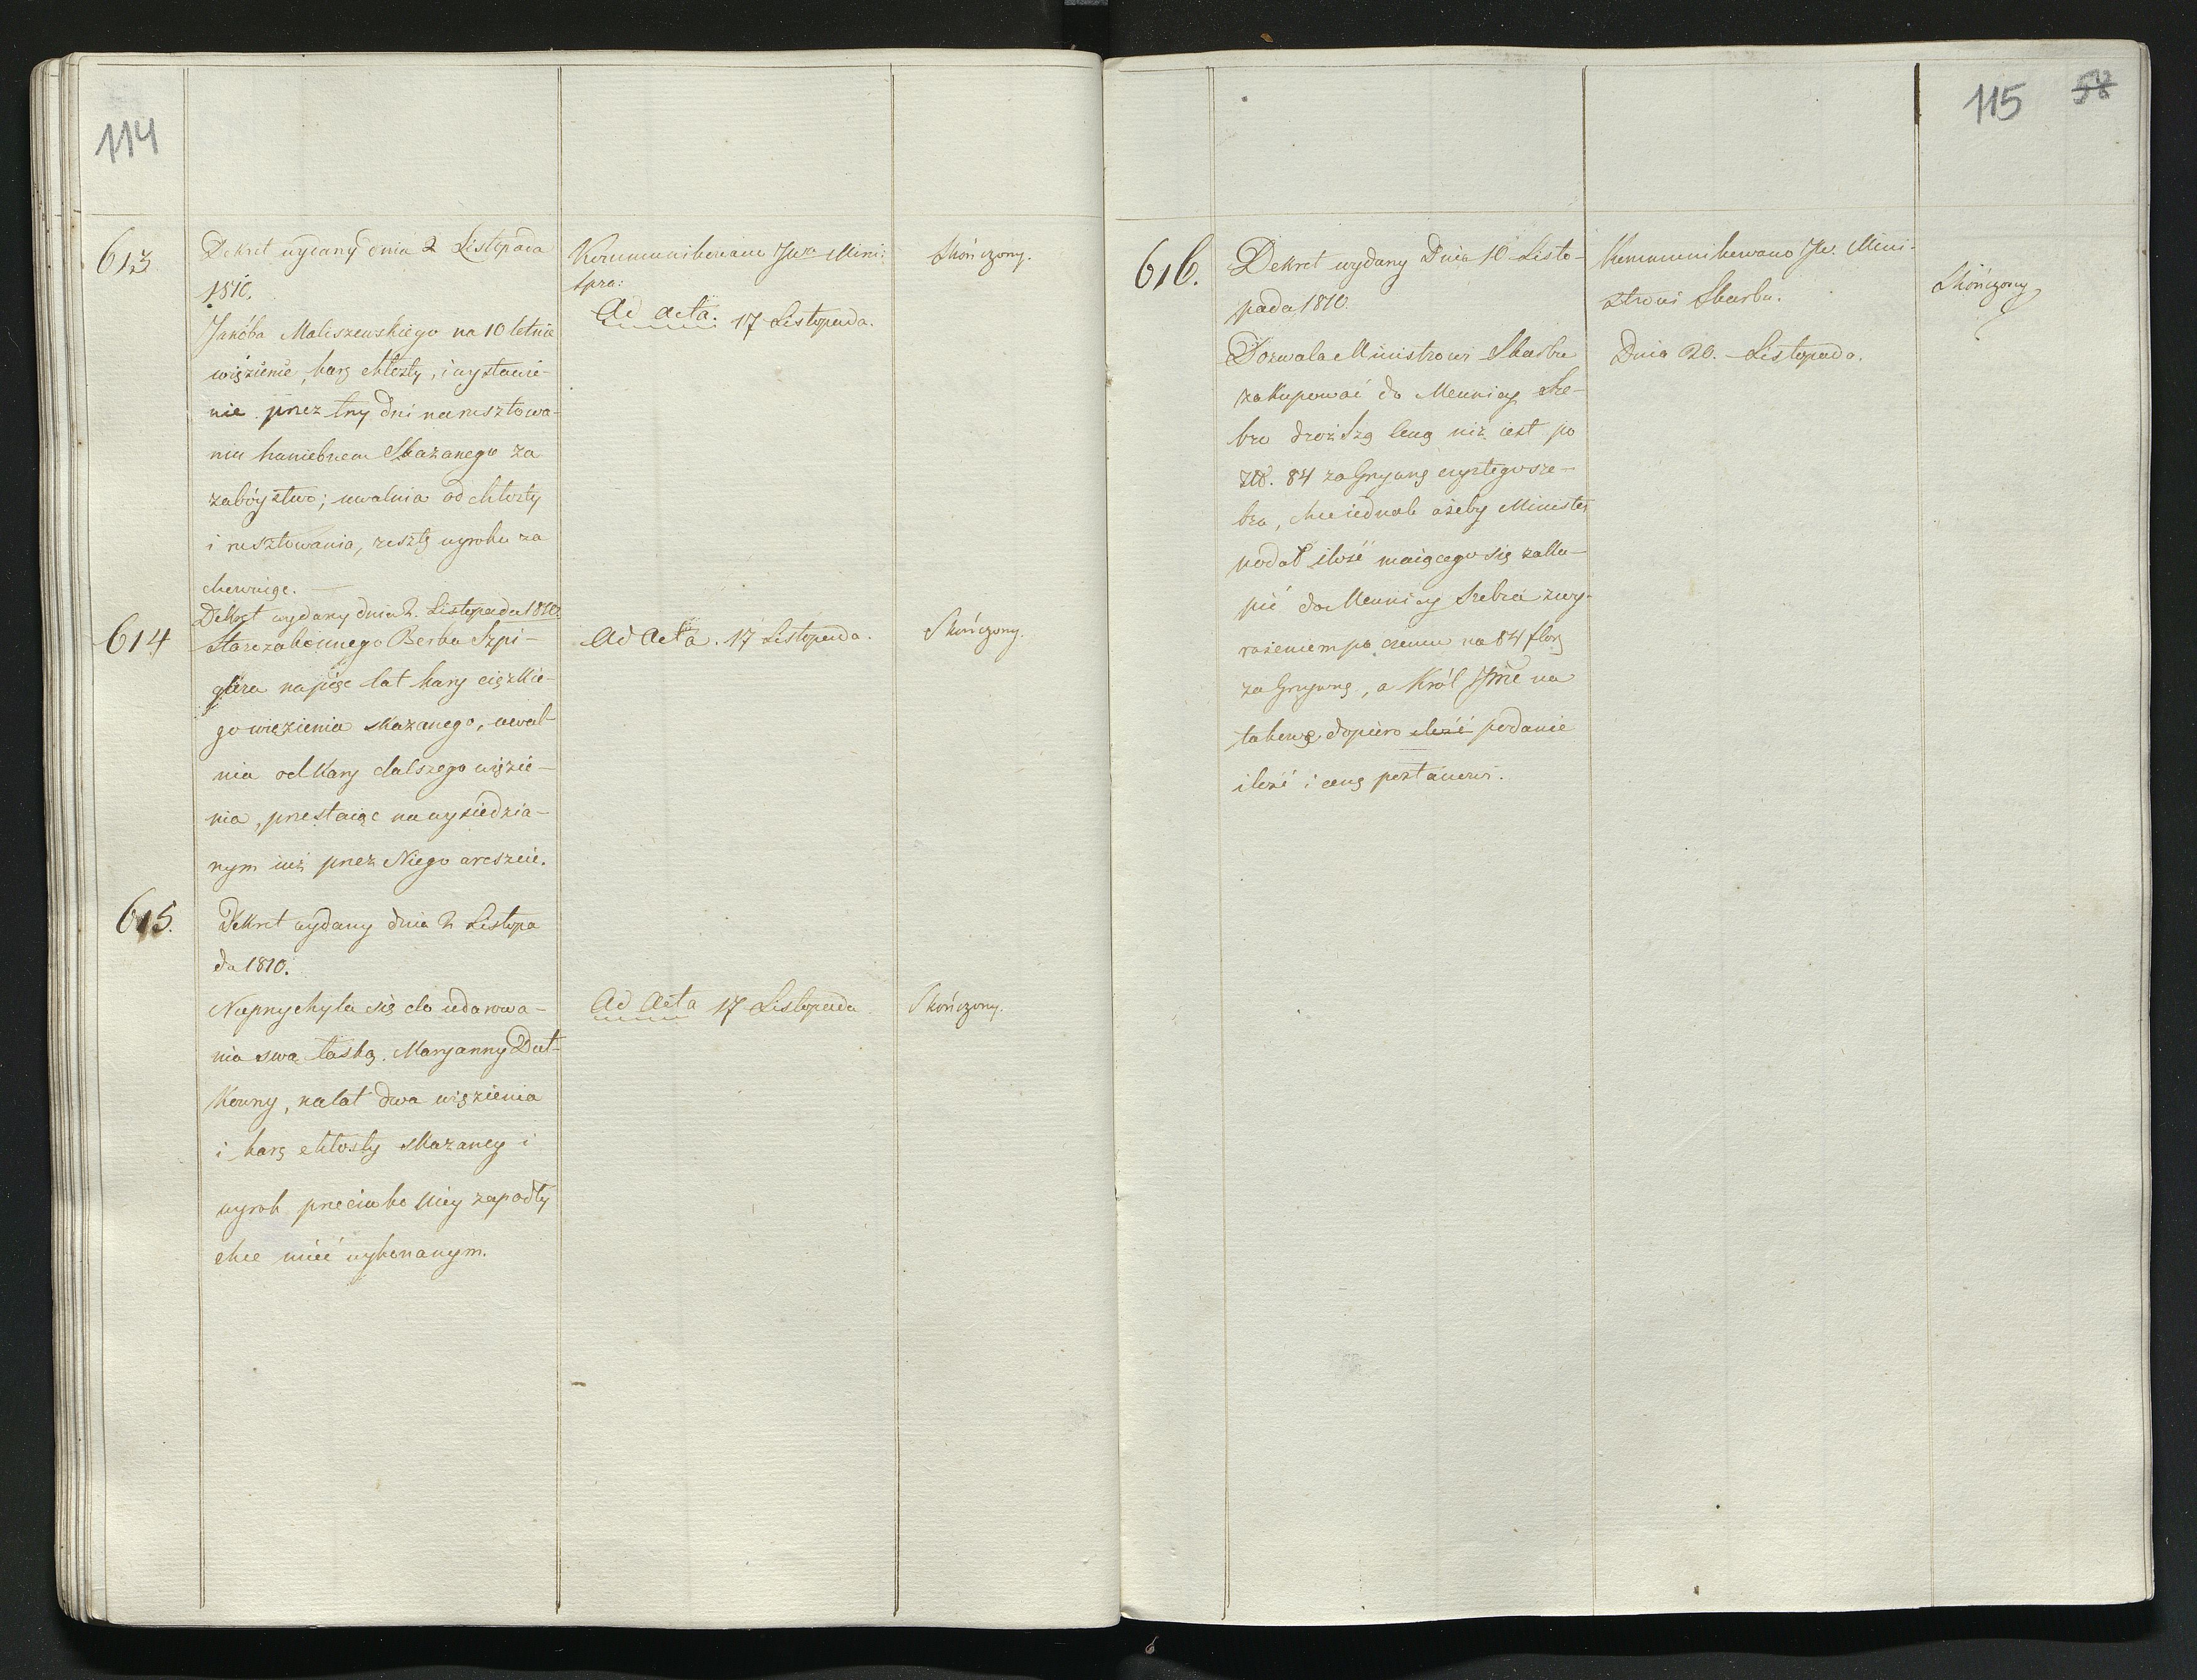 114
613.
Dekret wydany dnia 2 Listopada
1810.
Jakóba Maliszewskiego na 10 letnie
więzienie, karę chłosty, i wystawie-
nie przez trzy dni na rusztowa-
niu haniebnem Skazanego za
zabóystwo; uwalnia od chłosty
i rusztowania, resztę wyroku za
chowując. —
Kommunikowano JWu Mini:
spra:
Ad Acta. 17 Listopada.
Skończony.
614
Dekret wydany dnia 2. Listopada 1810
Starozakonnego Berka Szpi-
glera na pięć lat kary ciężkie-
go więzienia skazanego, uwal-
nia od Kary dalszego więzie-
nia, przestaiąc na wysiedzia-
nym iuż przez Niego areszcie.
Ad Acta. 17 Listopada.
Skończony.
615.
Dekret wydany dnia 2 Listopa
da 1810.
Nieprzychyla się do udarowa-
nia swą łaską. Maryanny Dut-
kowny, na lat dwa więzienia
i karę chłosty skazaney i
wyrok przeciwko Niey zapadły
chce mieć wykonanym.
Ad Acta 17 Listopada.
Skończony.
115
58
616.
Dekret wydany Dnia 10 Listo-
pada 1810.
Pozwala Ministrowi Skarbu
zakupować do Mennicy Sre-
bro droższą Ceną niż iest po
Złt. 84 za Grzywnę czystego sre-
bra, chce iednak ażeby Minister
podał ilość maiącego się zaku-
pić do Mennicy Srebra z wy-
rażeniem po czemu na 84 flor
za Grzywnę, a Król Jmć na
takowe dopiero ilość podanie
ilość i cenę postanowi.
Kommunikowano JW. Mini-
strowi Skarbu.
Dnia 20. Listopada.
Skończony